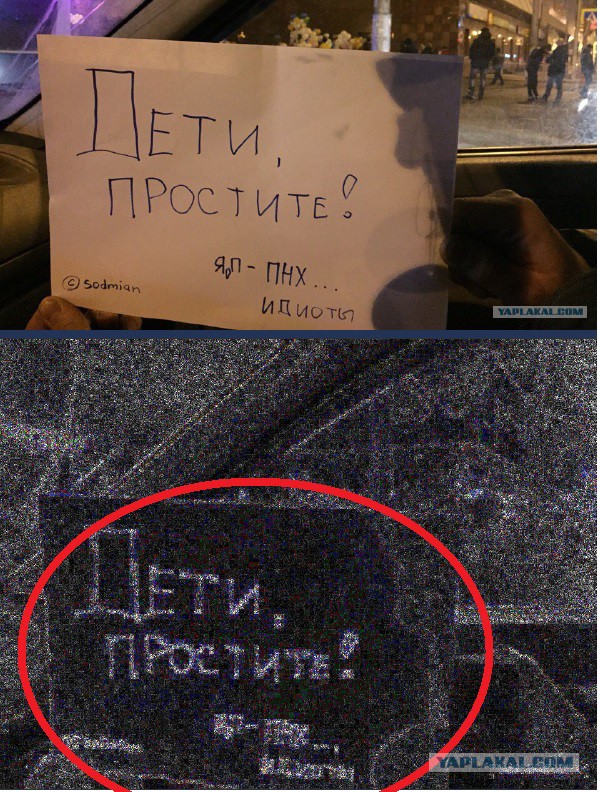 ДЕТИ,
ПРОСТИТЕ!
ЯрП - ПНХ...
ИДИОТЫ
© sodmian
YAPLAKAL.COM
ДЕТИ,
ПРОСТИТЕ!
ЯП - ПНХ...
ИДИОТЫ
YAPLAKAL.COM